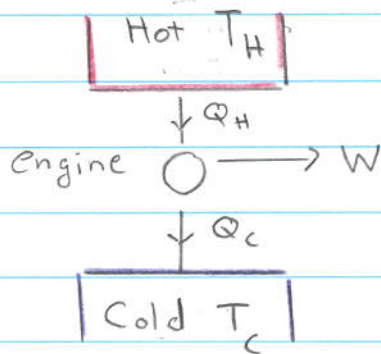 Hot T_H
Q_H
engine W
Q_C
Cold T_C